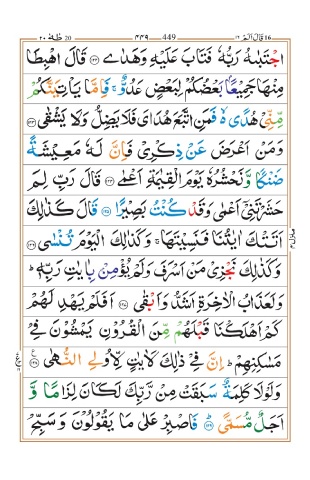 طٰهٰ ٢٠ 20 ٤٤٩ 449 قَالَ اَلَمْ ١٦ 16
اجْتَبٰىهُ رَبُّهٗ فَتَابَ عَلَيْهِ وَهَدٰى ﴿۱۲۲﴾ قَالَ اهْبِطَا
مِنْهَا جَمِيْعًۢا بَعْضُكُمْ لِبَعْضٍ عَدُوٌّ ۚ فَاِمَّا يَاْتِيَنَّكُمْ
مِّنِّيْ هُدًى ۙ فَمَنِ اتَّبَعَ هُدَايَ فَلَا يَضِلُّ وَلَا يَشْقٰى ﴿۱۲۳﴾
وَمَنْ اَعْرَضَ عَنْ ذِكْرِيْ فَاِنَّ لَهٗ مَعِيْشَةً
ضَنْكًا وَّنَحْشُرُهٗ يَوْمَ الْقِيٰمَةِ اَعْمٰى ﴿۱۲۴﴾ قَالَ رَبِّ لِمَ
حَشَرْتَنِيْۤ اَعْمٰى وَقَدْ كُنْتُ بَصِيْرًا ﴿۱۲۵﴾ قَالَ كَذٰلِكَ
اَتَتْكَ اٰيٰتُنَا فَنَسِيْتَهَا ۚ وَكَذٰلِكَ الْيَوْمَ تُنْسٰى ﴿۱۲۶﴾
وَكَذٰلِكَ نَجْزِيْ مَنْ اَسْرَفَ وَلَمْ يُؤْمِنْۢ بِاٰيٰتِ رَبِّهٖ ؕ
وَلَعَذَابُ الْاٰخِرَةِ اَشَدُّ وَاَبْقٰى ﴿۱۲۷﴾ اَفَلَمْ يَهْدِ لَهُمْ
كَمْ اَهْلَكْنَا قَبْلَهُمْ مِّنَ الْقُرُوْنِ يَمْشُوْنَ فِيْ
مَسٰكِنِهِمْ ؕ اِنَّ فِيْ ذٰلِكَ لَاٰيٰتٍ لِّاُولِي النُّهٰى ﴿۱۲۸﴾
وَلَوْلَا كَلِمَةٌ سَبَقَتْ مِنْ رَّبِّكَ لَكَانَ لِزَامًا وَّ
اَجَلٌ مُّسَمًّى ﴿۱۲۹﴾ فَاصْبِرْ عَلٰى مَا يَقُوْلُوْنَ وَسَبِّحْ